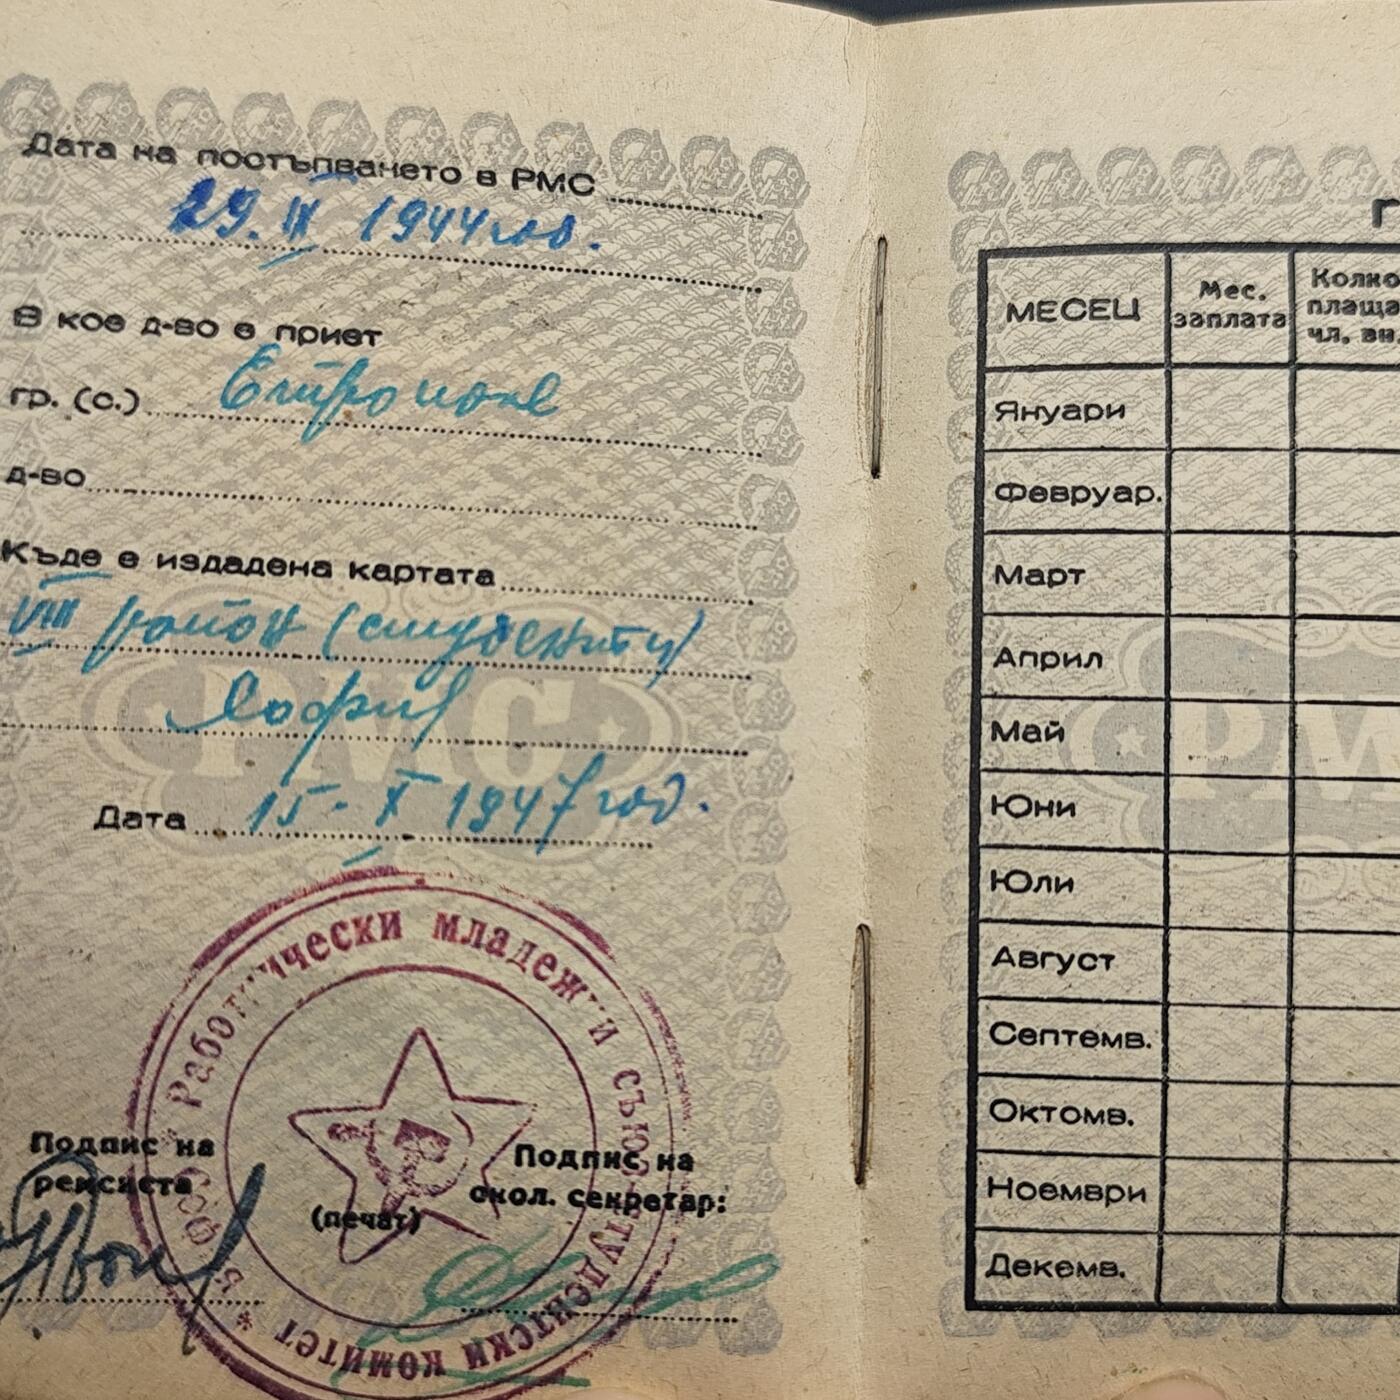 Дата на постъпването в РМС
29. IX 1944 год.
В кое д-во е приет
гр. (с.) Етрополе
д-во
Къде е издадена картата
VIII район (студенти)
София
Дата 15. X 1947 год.
Работнически младежки съюз
Студентски комитет
София
Подпис на
ремсиста
(печат)
Подпис на
окол. секретар:
РМС
МЕСЕЦ
Мес.
заплата
Колко
плаща
чл. вн.
Януари
Февруар.
Март
Април
Май
Юни
Юли
Август
Септемв.
Октомв.
Ноември
Декемв.